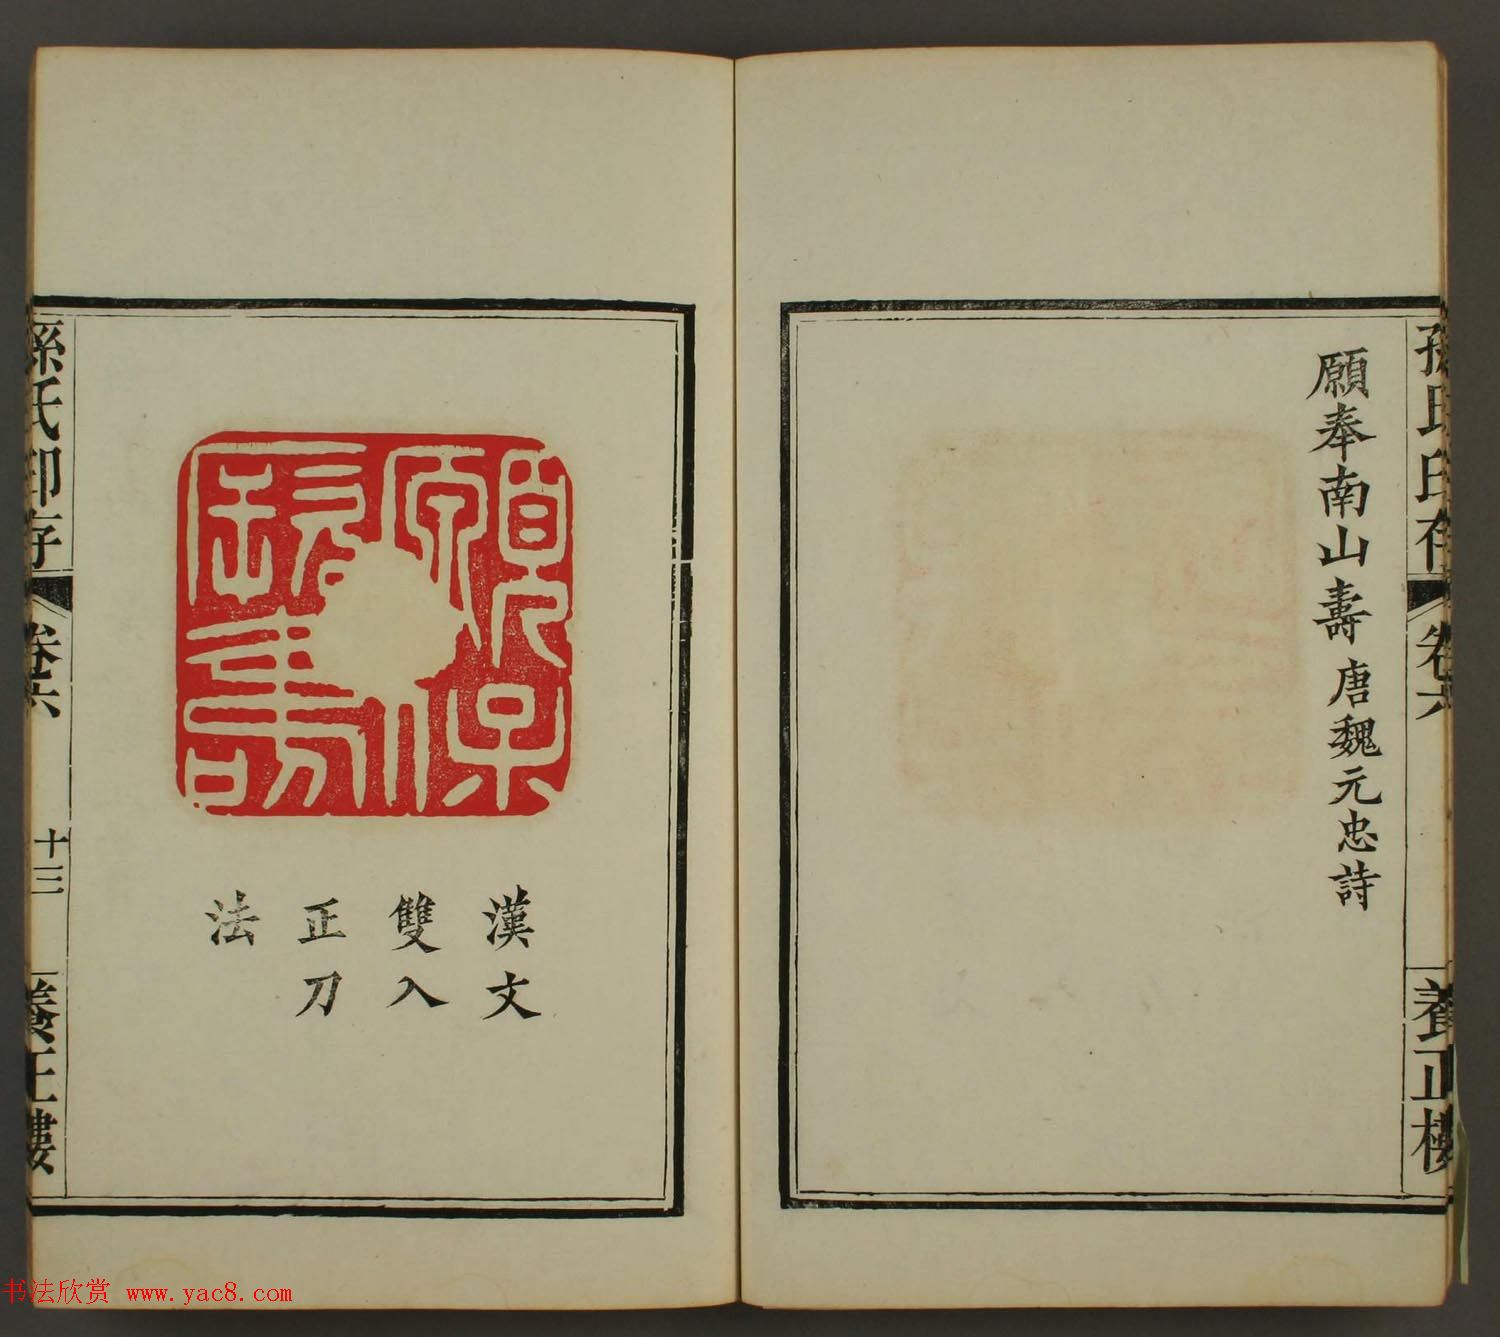 孫氏印存
卷六
養正樓
願奉南山壽 唐魏元忠詩
漢文
雙入
正刀
法
孫氏印存
卷六
十三
養正樓
书法欣赏 www.yac8.com